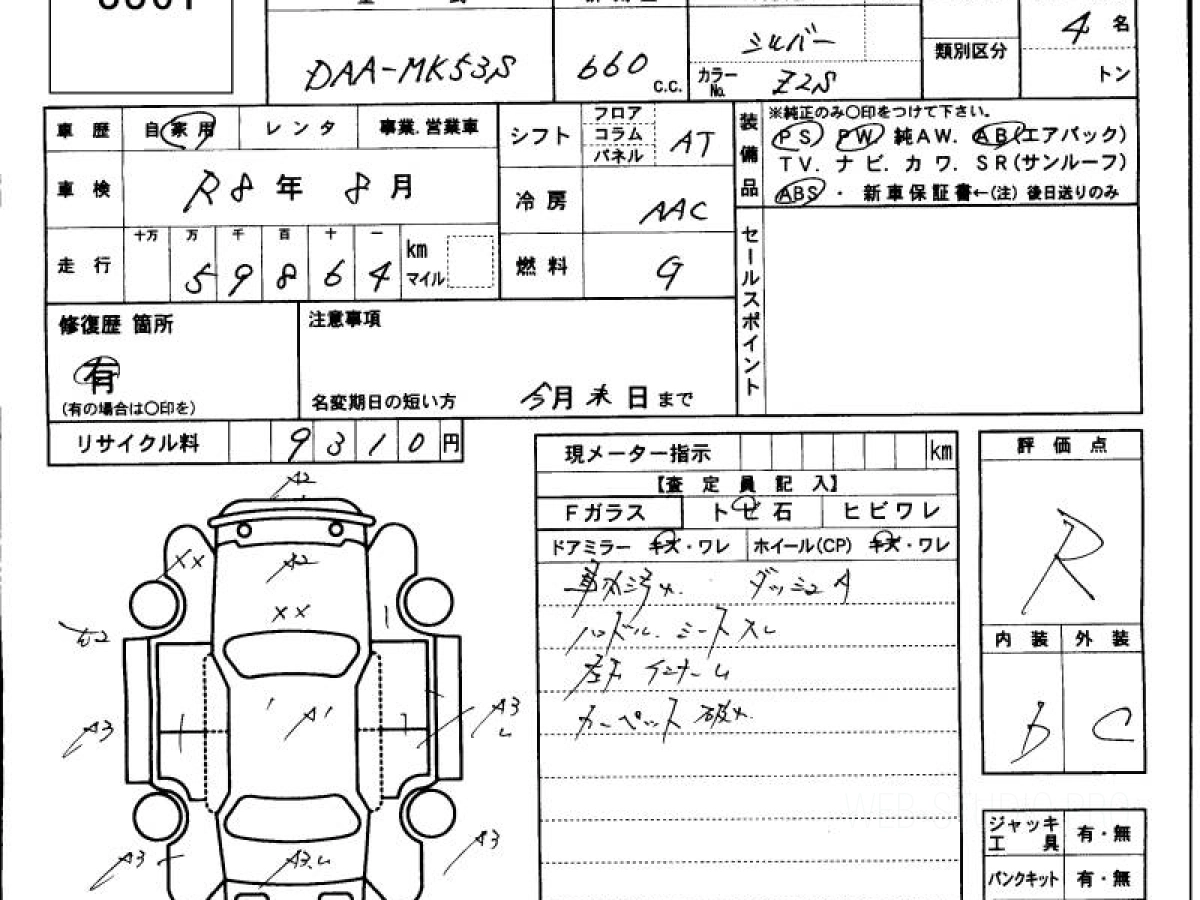 4 名
DAA-MK53S
660 c.c.
シルバー
カラーNo. Z2S
類別区分
トン
車歴 自家用 レンタ 事業.営業車
シフト フロア コラム パネル AT
装備品
※純正のみ〇印をつけて下さい。
PS PW 純AW. AB(エアバック)
TV. ナビ. カワ. SR(サンルーフ)
ABS ・ 新車保証書←(注) 後日送りのみ
車検 R8年 8月
冷房 AAC
走行 十万 万 千 百 十 一
5 9 8 6 4 km マイル
燃料 G
セールスポイント
修復歴 箇所
有
(有の場合は〇印を)
注意事項
名変期日の短い方 今月末日まで
リサイクル料 9 3 1 0 円
現メーター指示 km
【査定員記入】
Fガラス トビ石 ヒビワレ
ドアミラー キズ・ワレ ホイール(CP) キズ・ワレ
ダッシュA
ハンドル. シートスレ
カーペット破れ
評価点
R
内装 外装
C
ジャッキ工具 有・無
パンクキット 有・無
A2
XX
A2
XX
A3
A1
A3
A3
A3